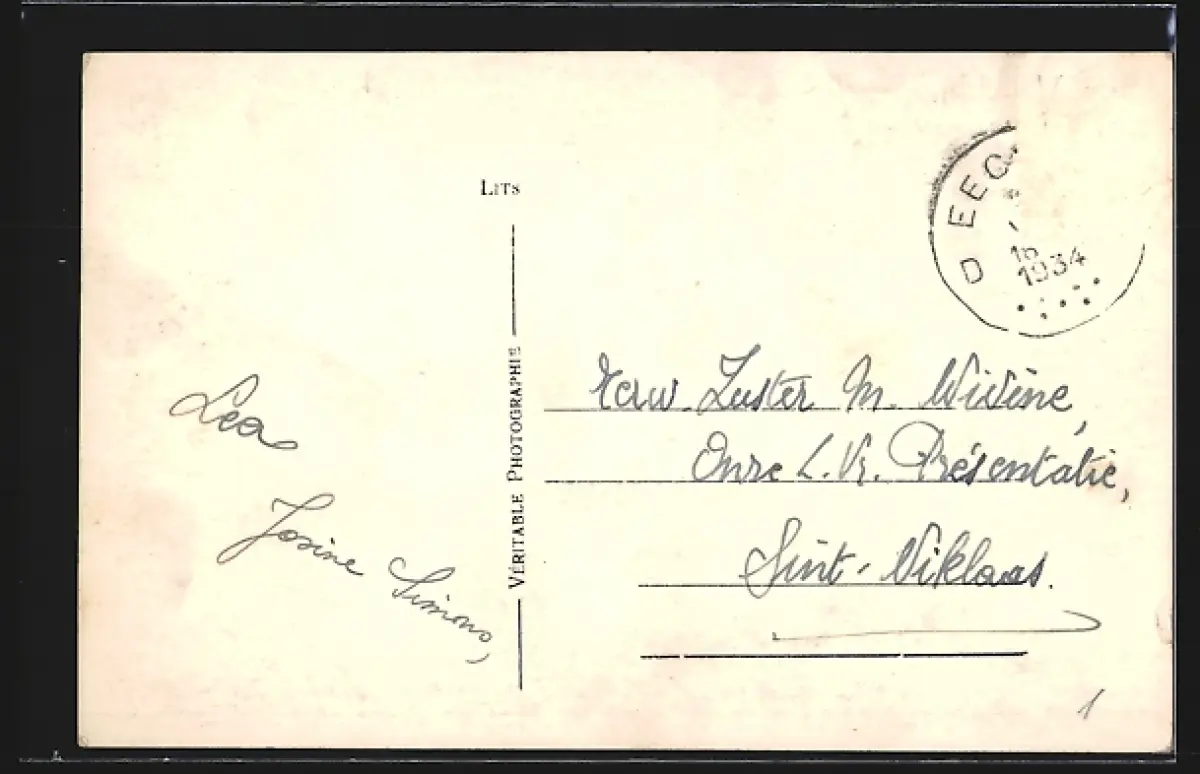 LITS
VÉRITABLE PHOTOGRAPHIE
D EEC
16
1934
Lea
Josine Simons,
Eerw. Zuster M. Wivine,
Onze L. Vr. Présentatie,
Sint-Niklaas.
1